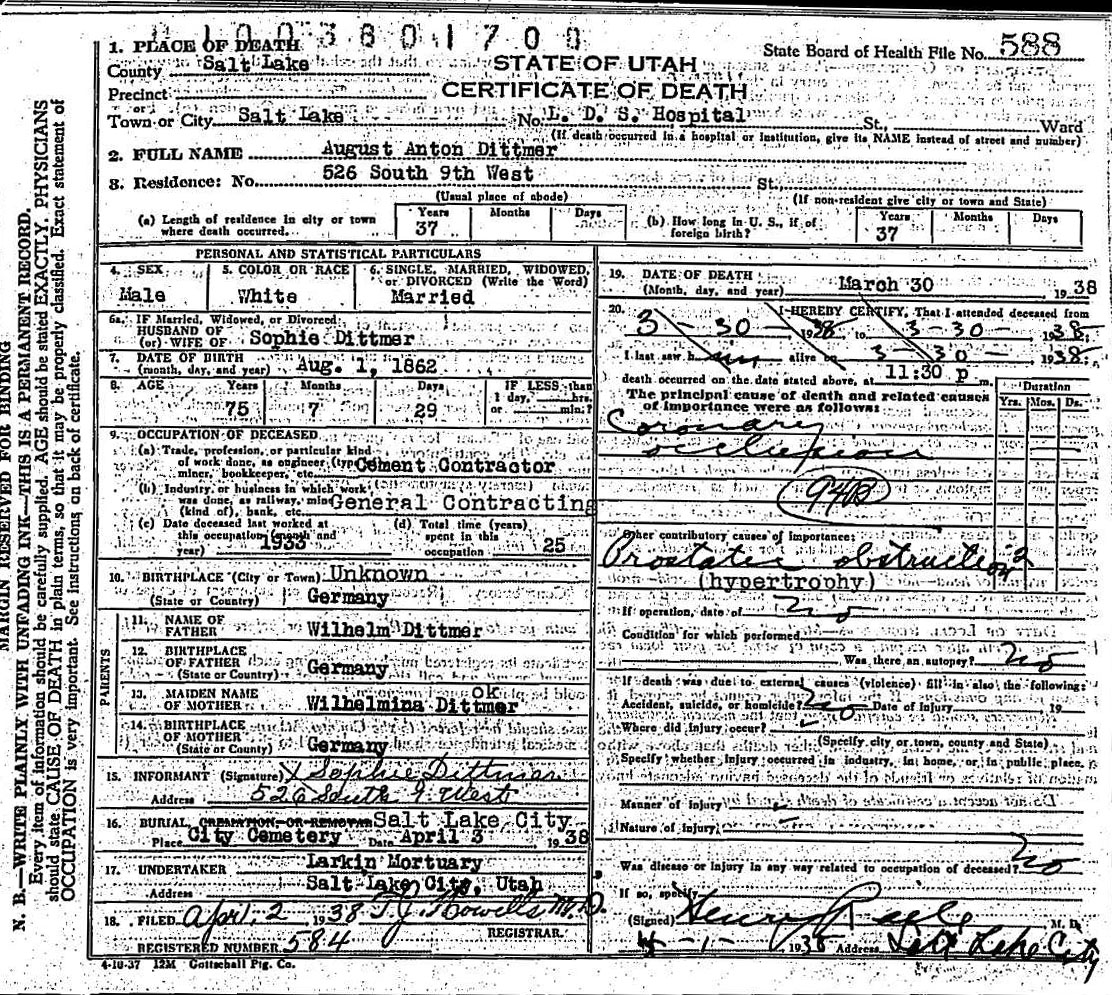 1003801700
1. PLACE OF DEATH
County Salt Lake
State Board of Health File No. 588
STATE OF UTAH
CERTIFICATE OF DEATH
Precinct
or
Town or City Salt Lake No. L. D. S. Hospital St., Ward
(If death occurred in a hospital or institution, give its NAME instead of street and number)
2. FULL NAME August Anton Dittmer
3. Residence: No. 526 South 9th West St.,
(Usual place of abode) (If non-resident give city or town and State)
(a) Length of residence in city or town where death occurred. Years 37 Months Days
(b) How long in U. S., if of foreign birth? Years 37 Months Days
PERSONAL AND STATISTICAL PARTICULARS
4. SEX Male
5. COLOR OR RACE White
6. SINGLE, MARRIED, WIDOWED, or DIVORCED (Write the Word) Married
6a. IF Married, Widowed, or Divorced
HUSBAND OF
(or) WIFE OF Sophie Dittmer
7. DATE OF BIRTH
(month, day, and year) Aug. 1, 1862
8. AGE Years 75 Months 7 Days 29 IF LESS than 1 day, hrs. or min.?
9. OCCUPATION OF DECEASED
(a) Trade, profession, or particular kind
of work done, as engineer (type
miner, bookkeeper, etc. Cement Contractor
(b) Industry, or business in which work
was done, as railway, mine
(kind of), bank, etc. General Contracting
(c) Date deceased last worked at
this occupation (month and
year) 1933
(d) Total time (years)
spent in this
occupation 25
10. BIRTHPLACE (City or Town) Unknown
(State or Country) Germany
PARENTS
11. NAME OF
FATHER Wilhelm Dittmer
12. BIRTHPLACE
OF FATHER
(State or Country) Germany
13. MAIDEN NAME ok
OF MOTHER Wilhelmina Dittmer
14. BIRTHPLACE
OF MOTHER
(State or Country) Germany
15. INFORMANT (Signature) X Sophie Dittmer
Address 526 South 9. West
16. BURIAL, CREMATION, OR REMOVAL Salt Lake City
Place City Cemetery Date April 3 1938
17. UNDERTAKER Larkin Mortuary
Address Salt Lake City, Utah
18. FILED April 2 1938 T. J. Howells M.D.
REGISTRAR.
REGISTERED NUMBER 584
4-10-37 12M Gottschall Ptg. Co.
19. DATE OF DEATH
(Month, day, and year) March 30 1938
20. I HEREBY CERTIFY, That I attended deceased from
3 - 30 - 1938 to 3 - 30 - 1938
I last saw him alive on 3 - 30 - 1938
death occurred on the date stated above, at 11:30 p m.
The principal cause of death and related causes
of importance were as follows: Duration
Yrs. Mos. Ds.
Coronary
occlusion
94B
Other contributory causes of importance:
Prostatic obstruction 2
(hypertrophy)
If operation, date of no
Condition for which performed
Was there an autopsy? no
If death was due to external causes (violence) fill in also the following:
Accident, suicide, or homicide? no Date of injury 19
Where did injury occur? -
(Specify city or town, county and State)
Specify whether injury occurred in industry, in home, or in public place.
Manner of injury -
Nature of injury -
Was disease or injury in any way related to occupation of deceased? no
If so, specify
(Signed) Henry M. D.
4 - 1 - 1938 Address Salt Lake City
MARGIN RESERVED FOR BINDING
N. B.—WRITE PLAINLY WITH UNFADING INK—THIS IS A PERMANENT RECORD.
Every item of information should be carefully supplied. AGE should be stated EXACTLY. PHYSICIANS
should state CAUSE OF DEATH in plain terms, so that it may be properly classified. Exact statement of
OCCUPATION is very important. See instructions on back of certificate.